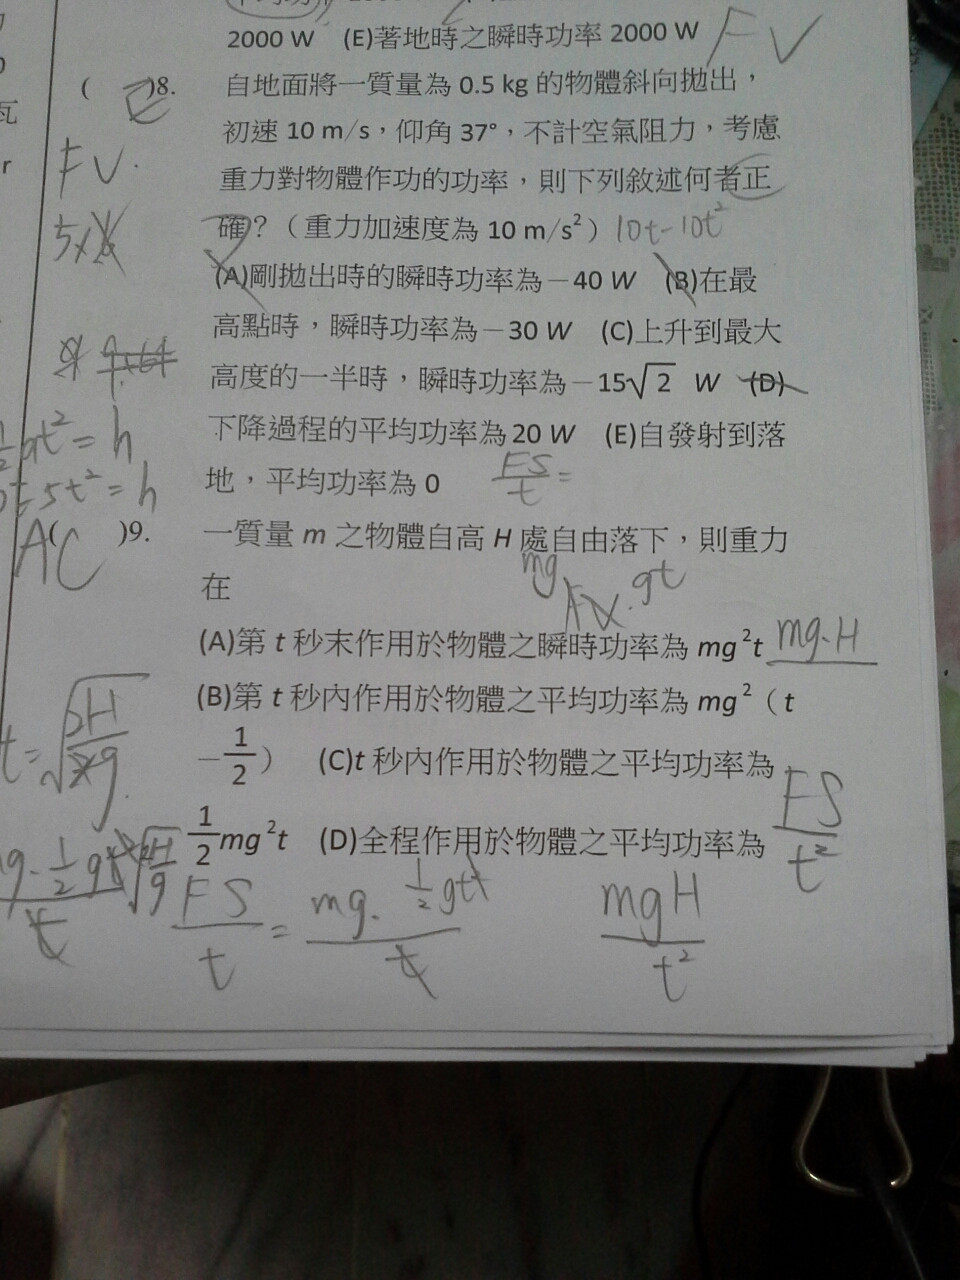 2000 W (E)著地時之瞬時功率 2000 W FV
( )8. 自地面將一質量為 0.5 kg 的物體斜向拋出，
初速 10 m/s，仰角 37°，不計空氣阻力，考慮
FV.
重力對物體作功的功率，則下列敘述何者正
確？（重力加速度為 10 m/s²）10t-10t²
(A)剛拋出時的瞬時功率為－40 W (B)在最
高點時，瞬時功率為－30 W (C)上升到最大
高度的一半時，瞬時功率為－15√2 W (D)
下降過程的平均功率為 20 W (E)自發射到落
地，平均功率為 0 FS/t =
5t² = h
AC
( )9. 一質量 m 之物體自高 H 處自由落下，則重力
在 mg gt
(A)第 t 秒末作用於物體之瞬時功率為 mg²t mg.H
(B)第 t 秒內作用於物體之平均功率為 mg²（t
－1/2） (C)t 秒內作用於物體之平均功率為
1/2 mg²t (D)全程作用於物體之平均功率為 FS/t²
FS/t = mg. 1/2 gtt/t mgH/t²